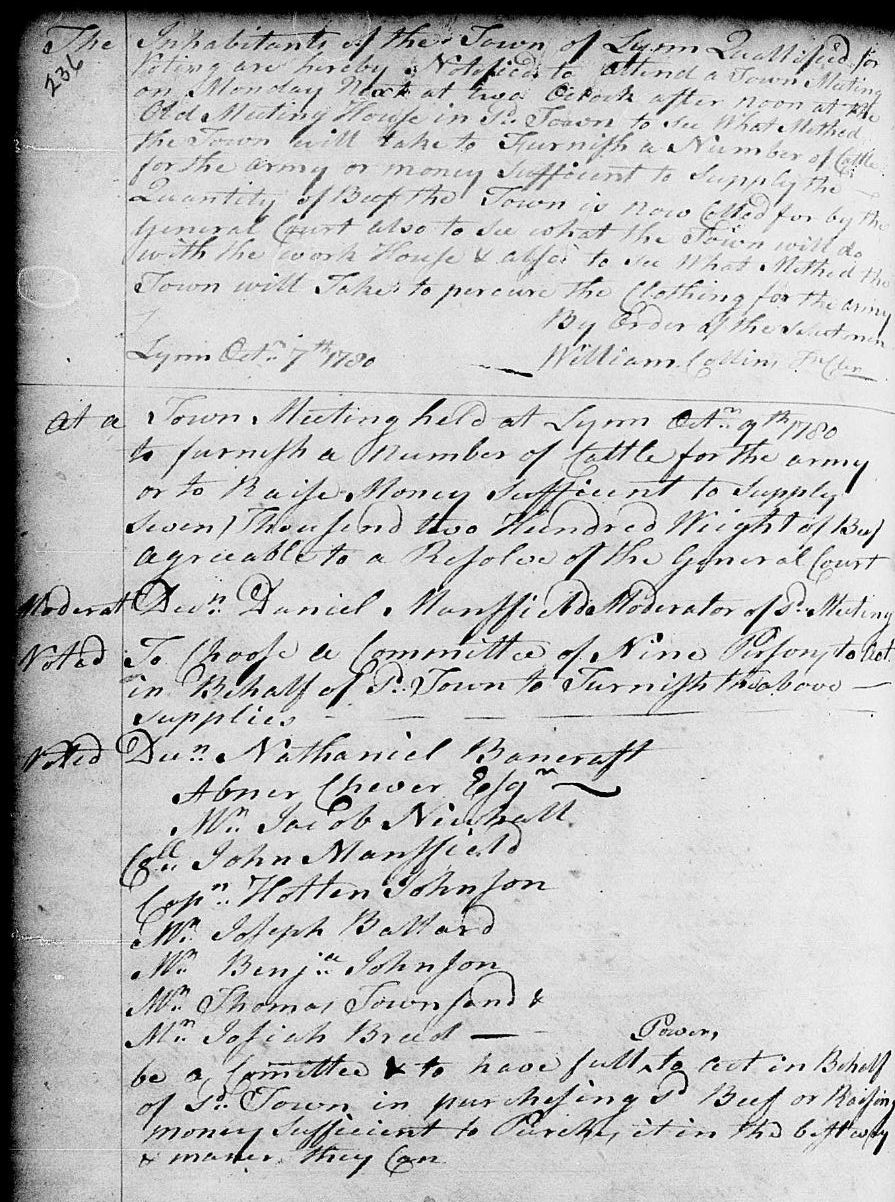 The Inhabitants of the Town of Lynn Quallified for
236
Voting are hereby Notified to attend a Town Meeting
on Monday Next at two Oclock after noon at the
Old Meeting House in Sd. Town to see What Method
the Town will take to Furnish a Number of Cattle
for the army or money Sufficient to Supply the
Quantity of Beef the Town is now Called for by the
General Court also to see what the Town will do
with the work House & also to see What Method the
Town will Take to percure the Clothing for the army
By Order of the Selectmen
Lynn Octr. 7th 1780 William Collins
At a Town Meeting held at Lynn Octr. 9th 1780
to furnish a Number of Cattle for the army
or to Raise Money Sufficient to Supply
Seven Thousend two Hundred Weight of Beef
agreeable to a Resolve of the General Court
Moderat Deun. Daniel Mansfield Moderator of Sd. Meeting
Voted To Choose a Committee of Nine Persons to Act
in Behalf of Sd. Town to Furnish the above
Supplies
Voted Deun. Nathaniel Bancraft
Abner Chever Esqr
Mr. Jacob Newhall
Coll. John Mansfield
Capn. Holten Johnson
Mr. Joseph Ballard
Mr. Benja. Johnson
Mr. Thomas Townsand &
Mr. Josiah Breed
Power,
be a Comittee & to have full to act in Behalf
of Sd. Town in purchesing Sd Beef or Raising
money Sufficient to Purches it in the best way
& maner they Can